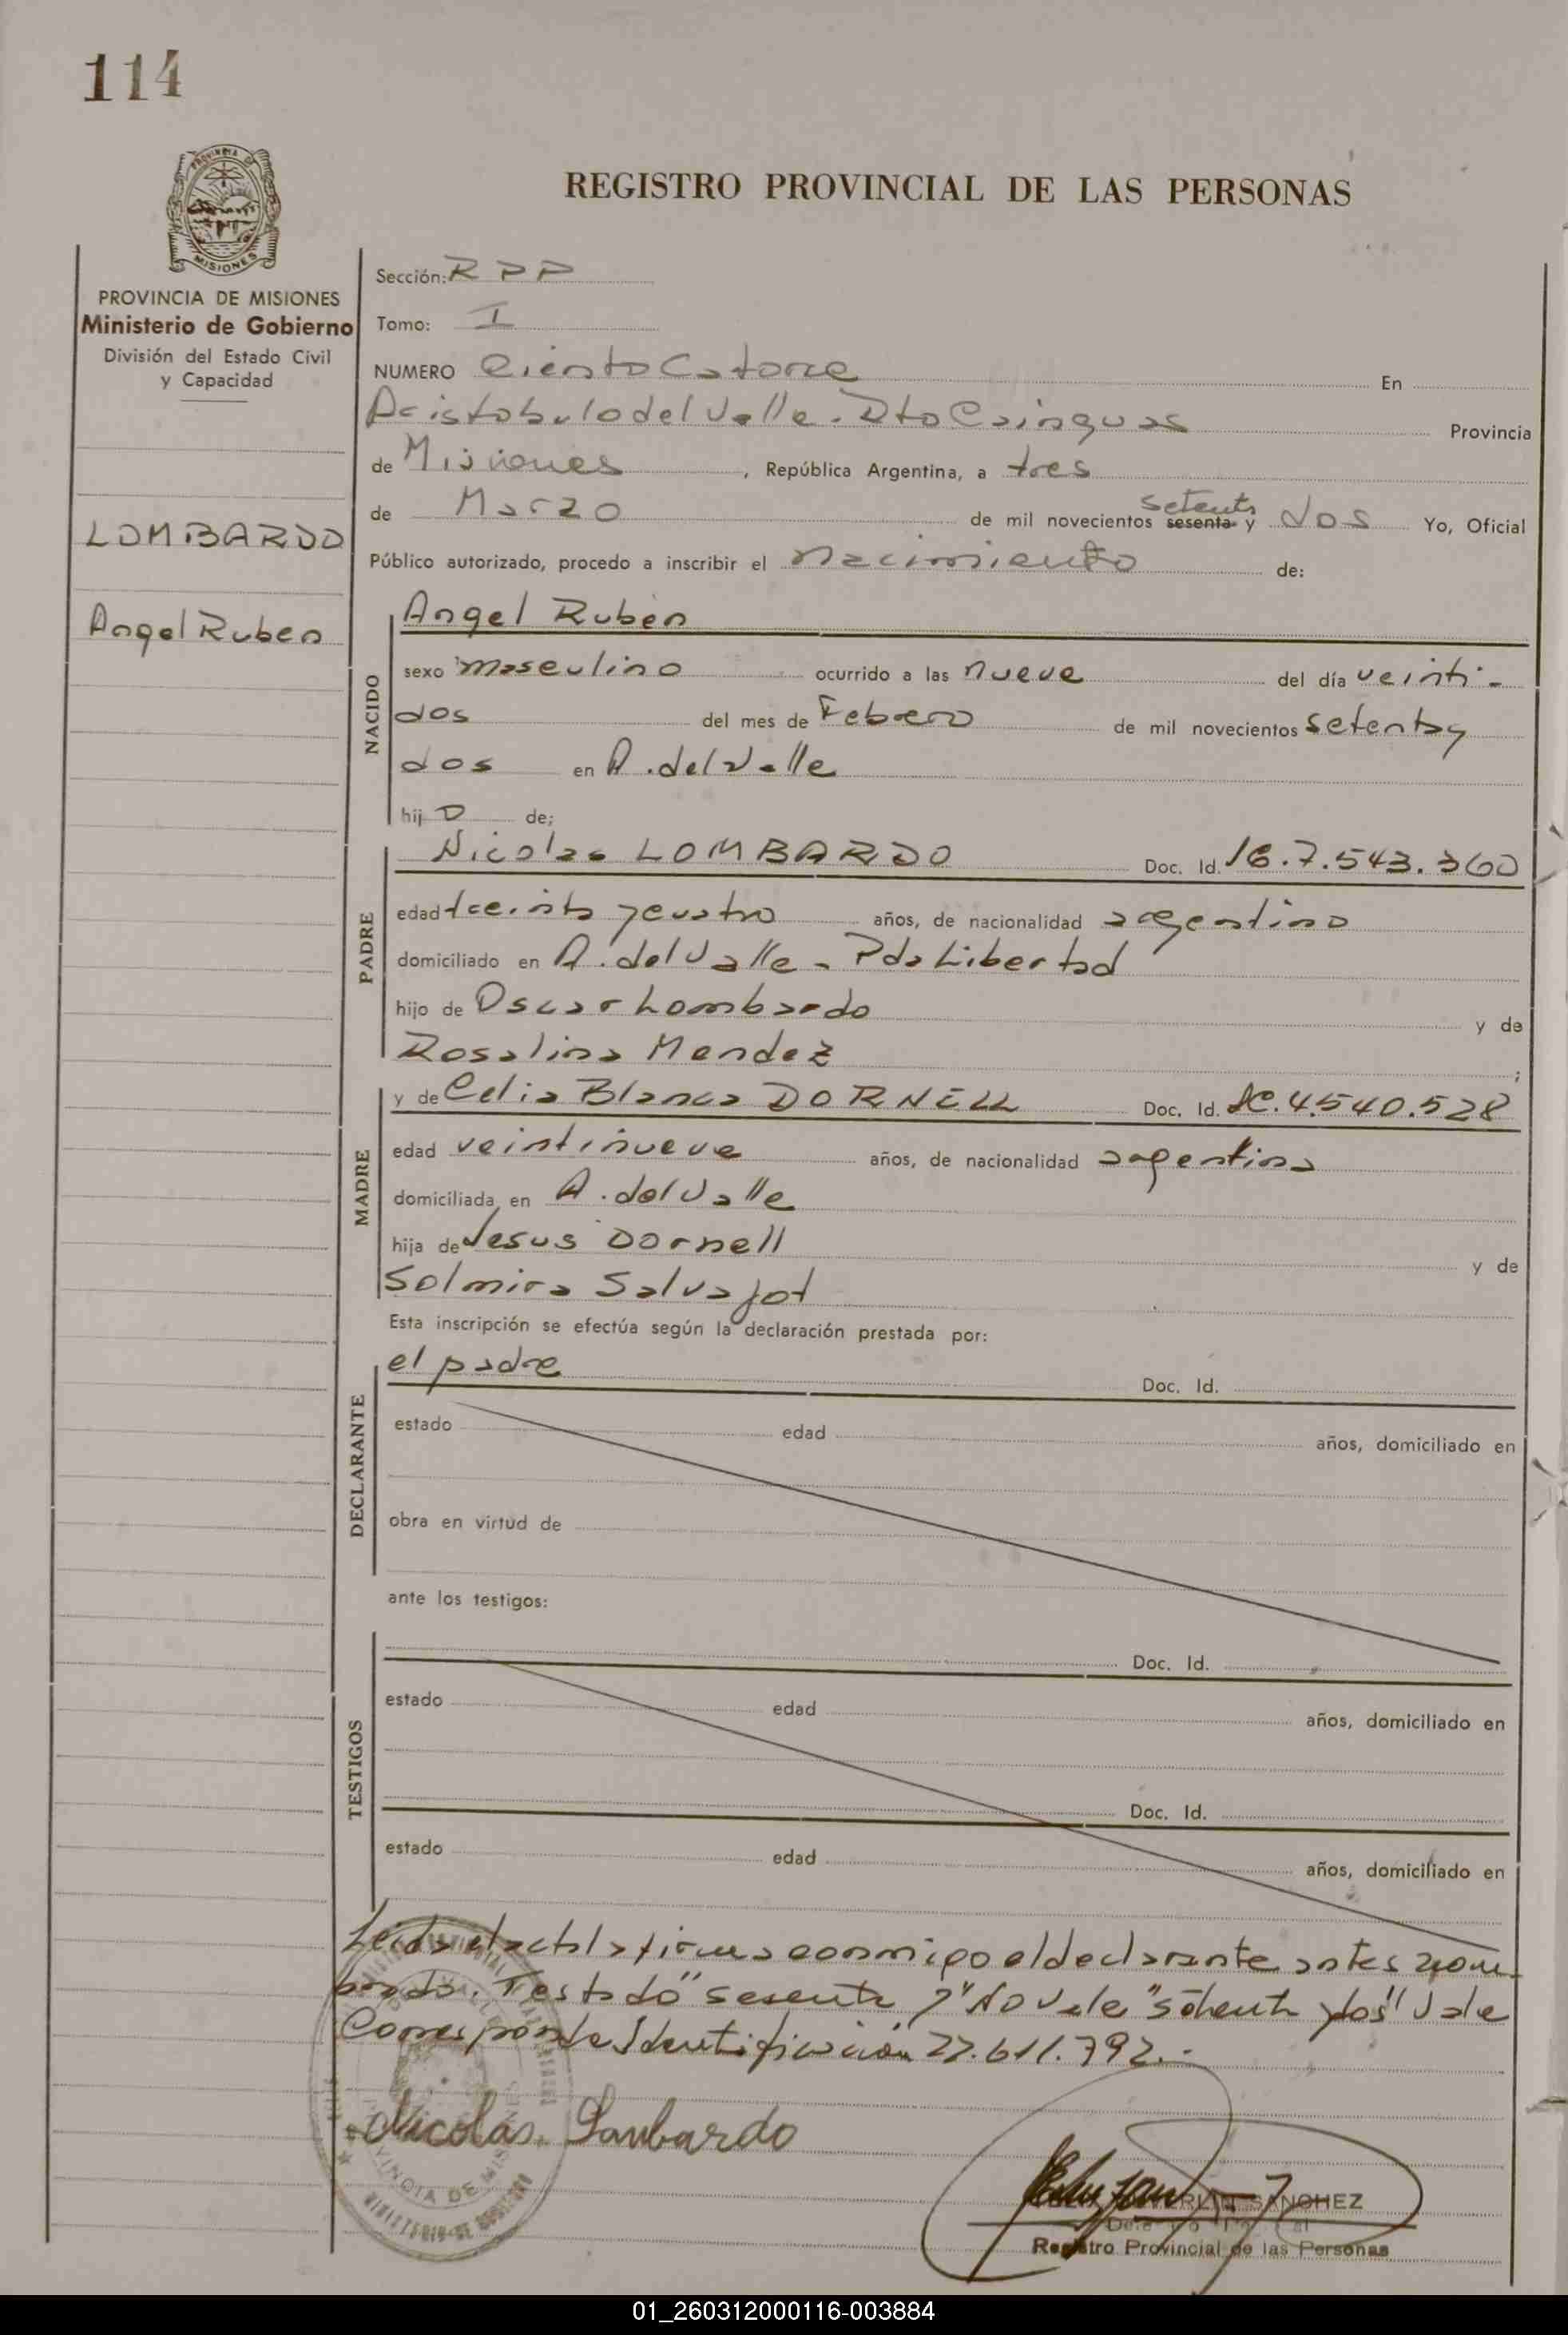 114
REGISTRO PROVINCIAL DE LAS PERSONAS
PROVINCIA DE MISIONES
Ministerio de Gobierno
División del Estado Civil
y Capacidad
LOMBARDO
Angel Ruben
Sección: RPP
Tomo: I
NUMERO Ciento Catorce En
Aristobulo del Valle. Dto Cainguas Provincia
de Misiones, República Argentina, a tres
de Marzo de mil novecientos setenta sesenta y dos Yo, Oficial
Público autorizado, procedo a inscribir el Nacimiento de:
NACIDO
Angel Rubén
sexo masculino ocurrido a las nueve del día veinti-
dos del mes de Febrero de mil novecientos setentay
dos en A. del Valle
hijo de;
PADRE
Nicolas LOMBARDO Doc. Id. 16.7.543.360
edad treinta y cuatro años, de nacionalidad argentino
domiciliado en A. del Valle - Pda Libertad
hijo de Oscar Lombardo y de
Rosalina Mendez ;
MADRE
y de Celia Blanca DORNELL Doc. Id. LC. 4.540.528
edad veintinueve años, de nacionalidad argentina
domiciliada en A. del Valle
hija de Jesus Dornell y de
Solmira Salvajot
Esta inscripción se efectúa según la declaración prestada por:
DECLARANTE
el padre Doc. Id.
estado edad años, domiciliado en
obra en virtud de
ante los testigos:
TESTIGOS
Doc. Id.
estado edad años, domiciliado en
Doc. Id.
estado edad años, domiciliado en
Leida el acta la firma conmigo el declarante antes nom-
brado. Testado "sesenta y" No Vale "setenta y dos" Vale
Corresponde Identificación 22.611.792.-
Nicolas Lombardo
SANCHEZ
Registro Provincial de las Personas
01_260312000116-003884